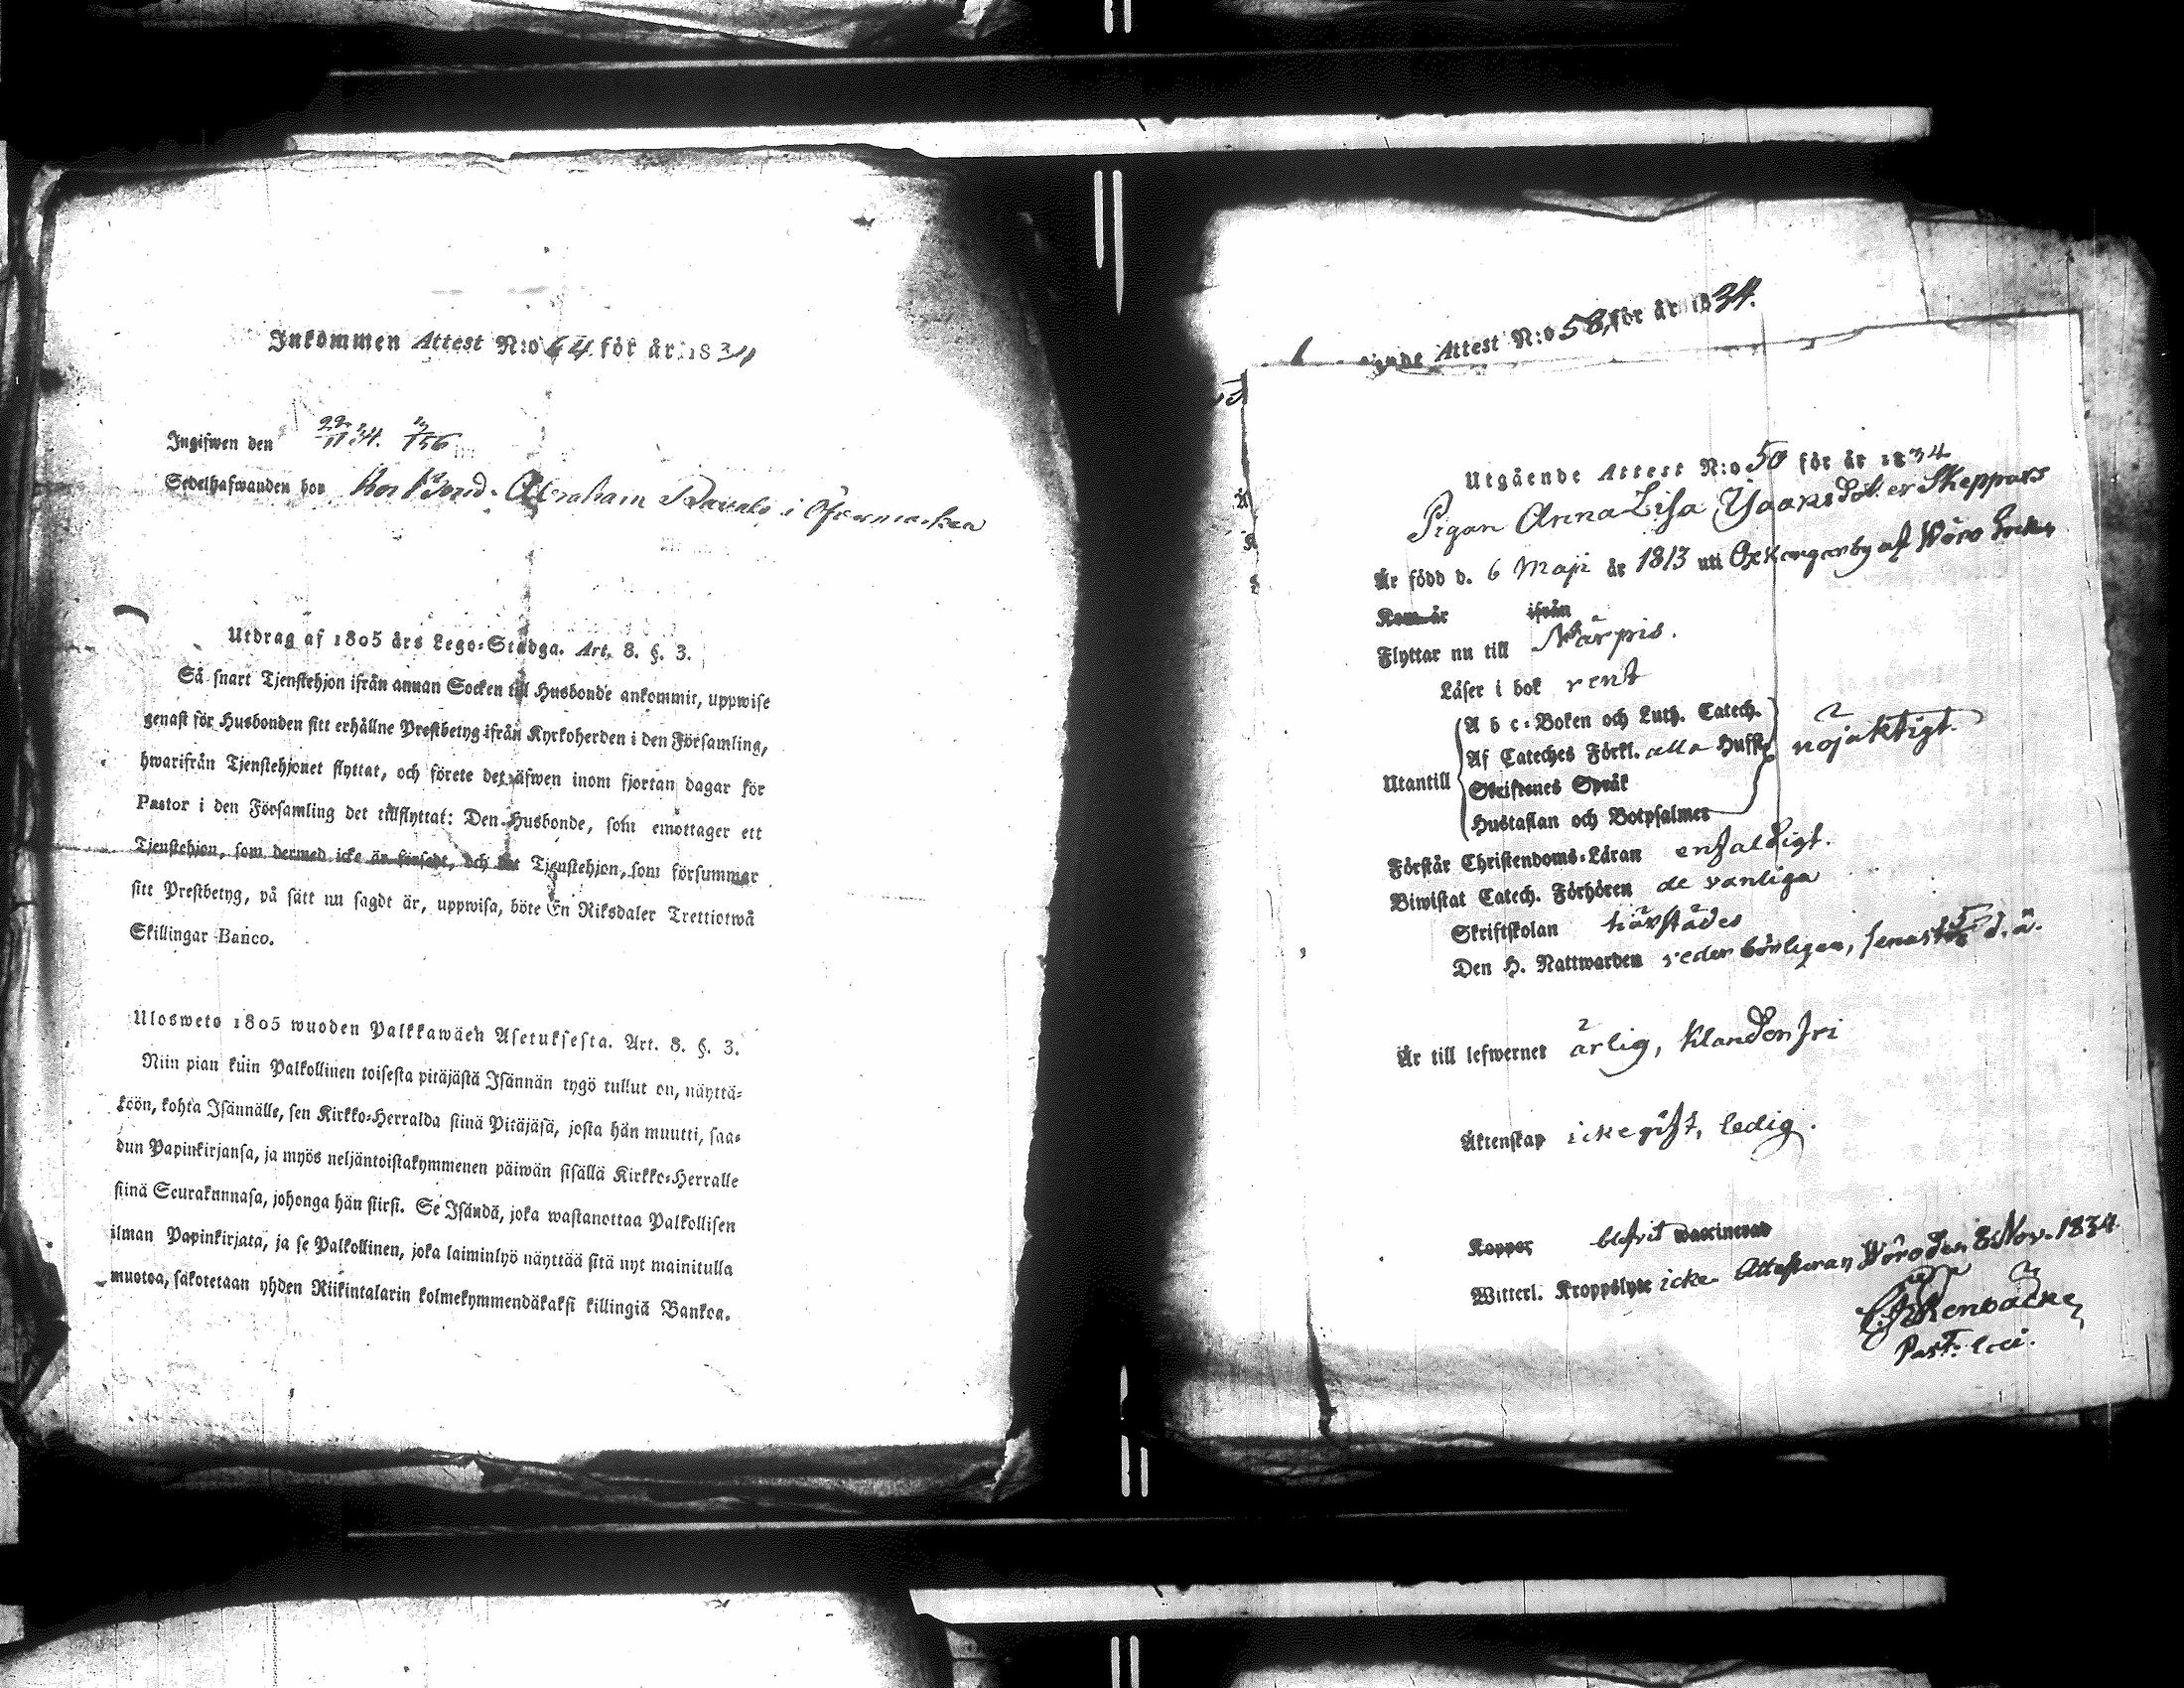 Inkommen Attest N:o 64 för år 1834
Ingifwen den 22/11 34. 3/156
Sedelhafwanden hos Bond. Abraham i Öfvermarken
Utdrag af 1805 års Lego-Stadga. Art. 8. §. 3.
Så snart Tjenstehjon ifrån annan Socken till Husbonde ankommit, uppwise
genast för Husbonden sitt erhållne Prestbetyg ifrån Kyrkoherden i den Församling,
hwarifrån Tjenstehjonet flyttat, och förete det äfwen inom fjortan dagar för
Pastor i den Församling det tillflyttat: Den Husbonde, som emottager ett
Tjenstehjon, som dermed icke är försedt, och det Tjenstehjon, som försummar
sitt Prestbetyg, på sätt nu sagdt är, uppwisa, böte En Riksdaler Trettiotwå
Skillingar Banco.
Ulosweto 1805 wuoden Palkkawäen Asetuksesta. Art. 8. §. 3.
Niin pian kuin Palkollinen toisesta pitäjästä Isännän tygö tullut on, näyttä-
köön, kohta Isännälle, sen Kirkko-Herralda siinä Pitäjäsä, josta hän muutti, saa-
dun Papinkirjansa, ja myös neljäntoistakymmenen päiwän sisällä Kirkko-Herralle
siinä Seurakunnasa, johonga hän siirsi. Se Isändä, joka wastanottaa Palkollisen
ilman Papinkirjata, ja se Palkollinen, joka laiminlyö näyttää sitä nyt mainitulla
muotoa, sakotetaan yhden Riikintalarin kolmekymmendäkaksi killingiä Bankoa.
Attest N:o 58 för år 1834.
Utgående Attest N:o 50 för år 1834
Pigan Anna Lisa Isaksdotter Skeppars
Är född d. 6 Maji år 1813 uti Oxkangarby af Wörå Socken
Kom år ifrån
Flyttar nu till Närpis.
Läser i bok rent
A b c-Boken och Luth. Catech.
Af Cateches Förkl. alla Hufst. nöjaktigt.
Utantill Skriftenes Språk
Hustaflan och Botpsalmer
Förstår Christendoms-Läran enfaldigt.
Biwistat Catech. Förhören de vanliga
Skriftskolan härstädes
Den H. Nattwarden vederbörligen, senast 5/ d. å.
Är till lefwernet ärlig, klanderfri
Äktenskap icke gift, ledig.
Koppor blifvit waccinerad
Witterl. Kroppslyte icke. Attesteras Wörå den 8 Nov. 1834
Past: loci.